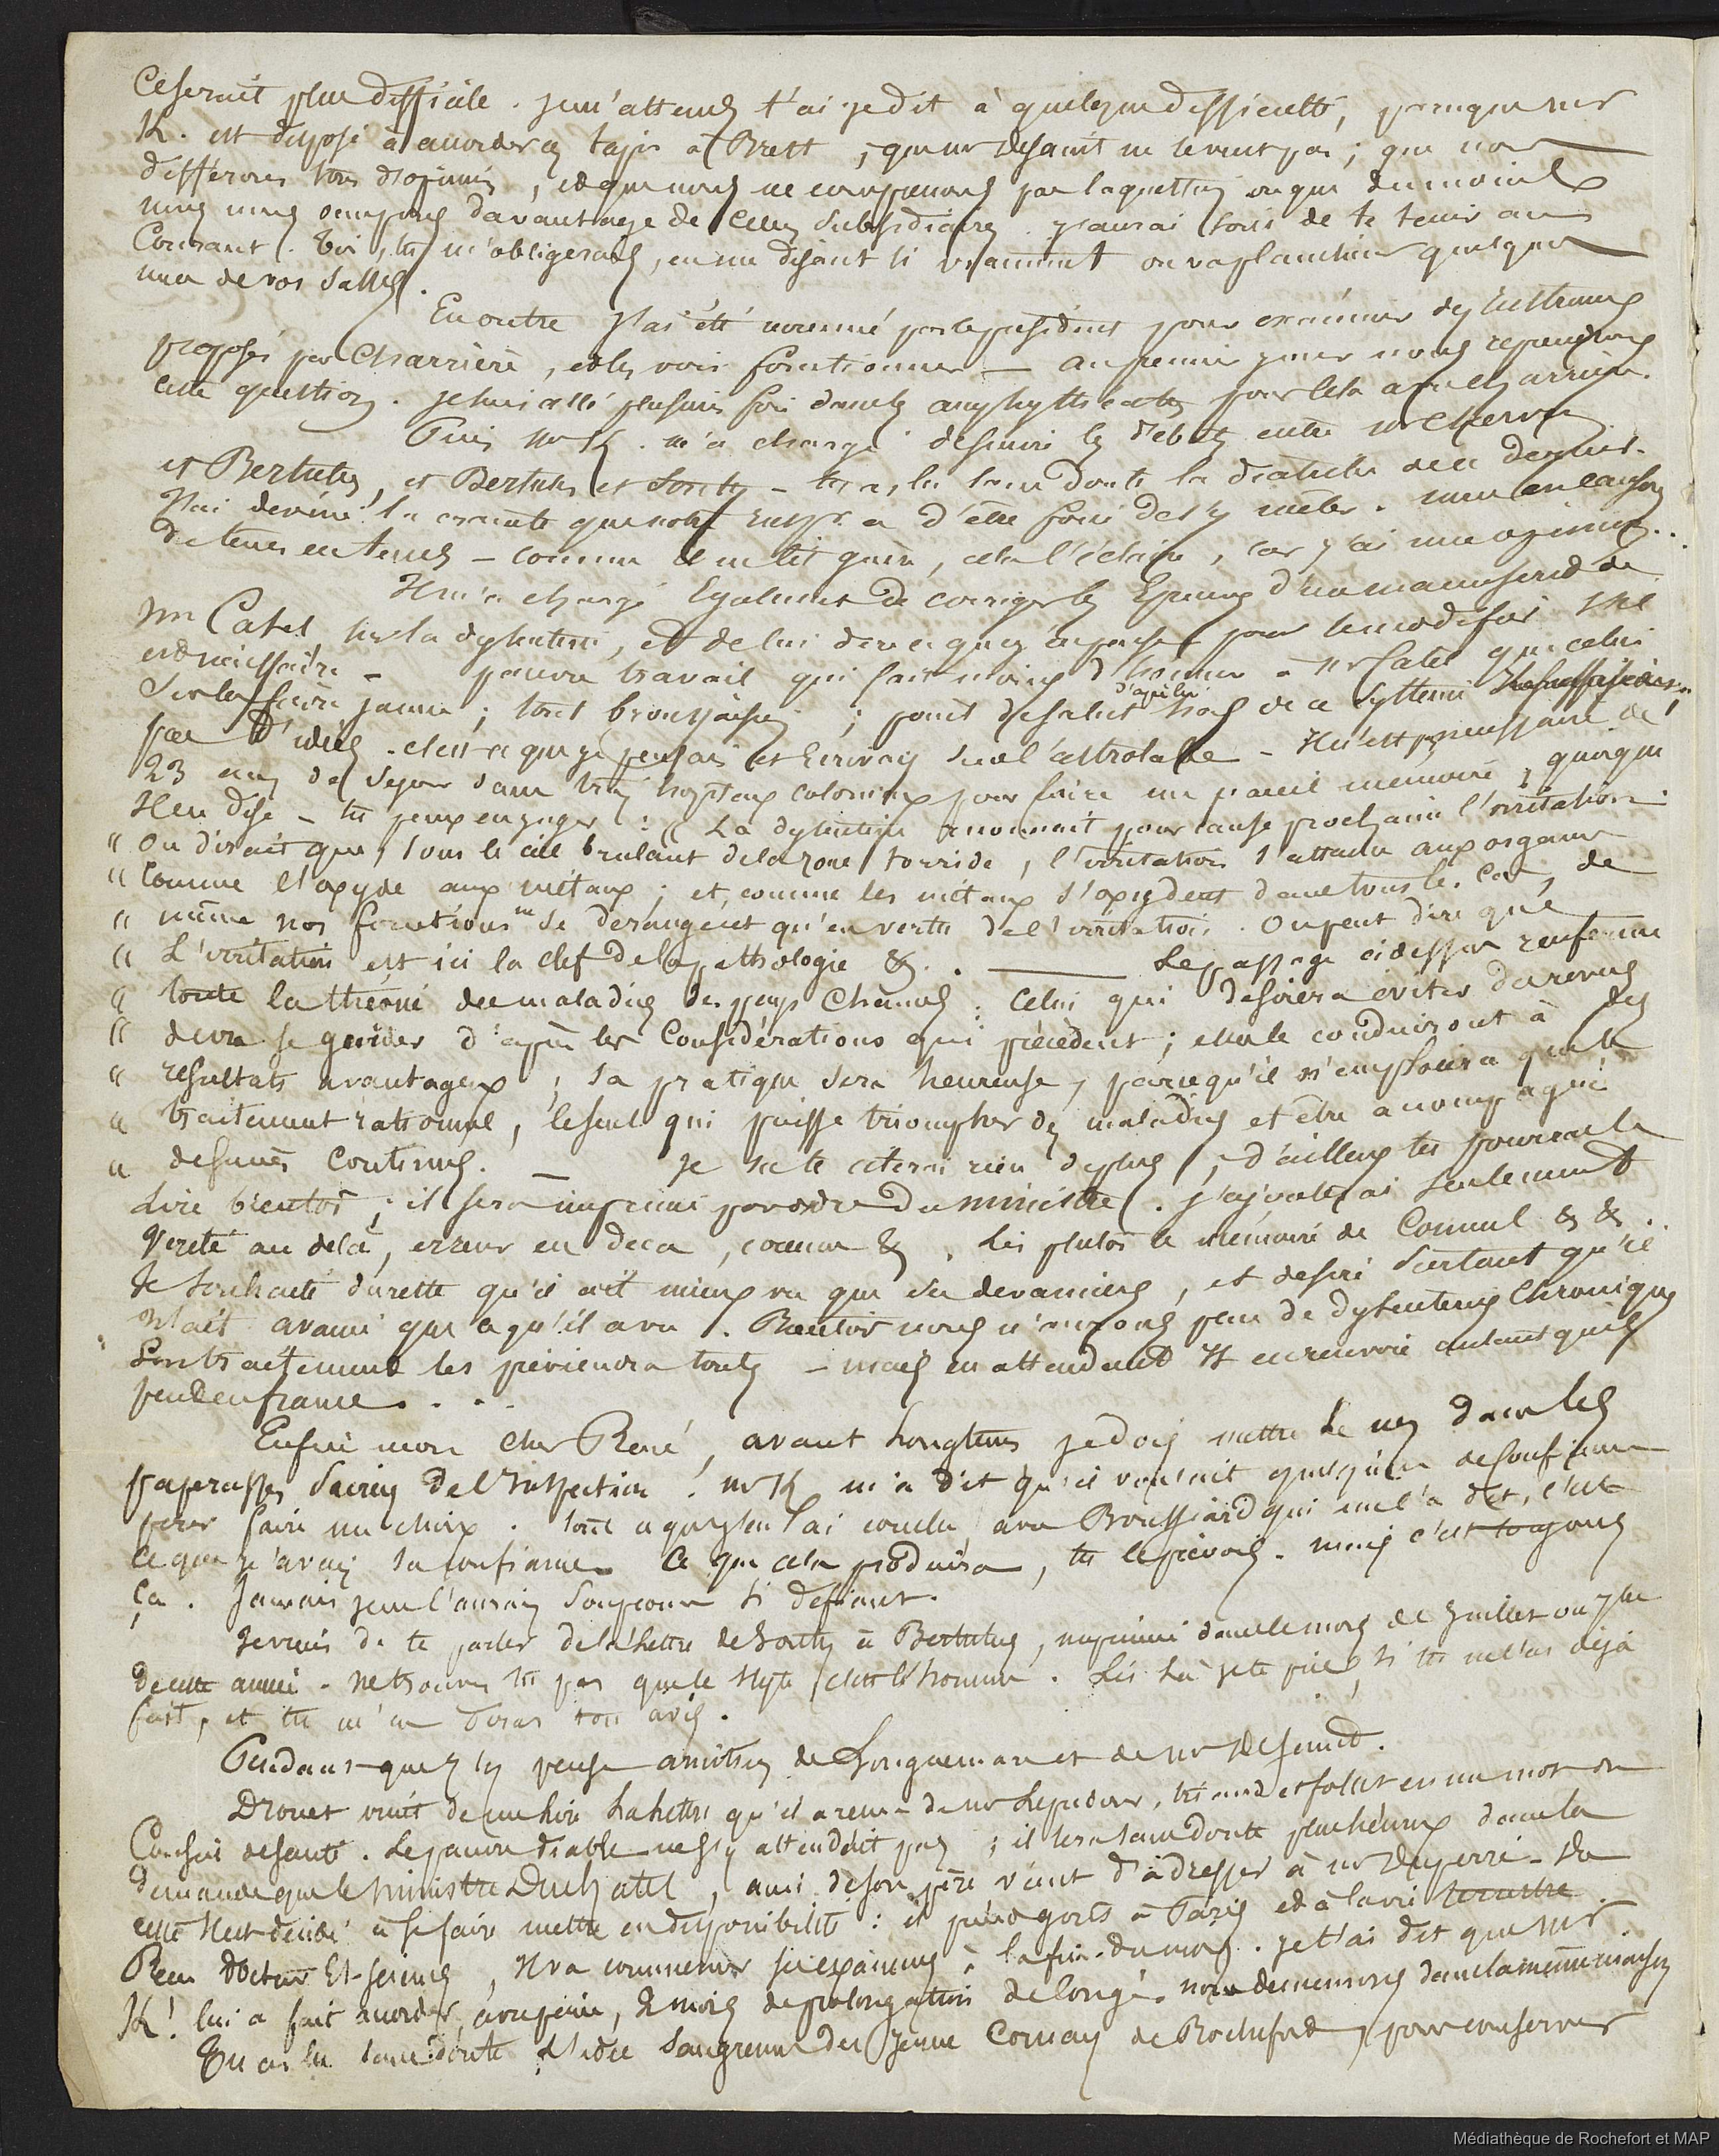 Ce serait plus difficile. je m'attends t'ai-je dit à quelque difficulté, parceque mr
K. est disposé à accorder ce tapis à Brest ; que mr ne le veut pas ; que nous
différons tous d'opinion, et que nous ne comprenons pas la question ou que du moins
nous nous occupons davantage de celles subsidiaires. j'aurai soin de te tenir au
Courant. Toi, tu m'obligerais, en me disant si vraiment on va plancheier quelques
unes de vos salles.
En outre j'ai été nommé par le président pour examiner des Instruments
proposés par Charrière, et les voir fonctionner — au premier jour nous reprendrons
cette question. je suis allé plusieurs fois dans les pour cela avec Charrière.
Puis mr K. m'a chargé de suivre les débats entre mr Chervin
et Bertulus, et Bertulus et Souty — tu as lu sans doute la diatribe de ce dernier.
J'ai deviné la crainte que notre Inspr a d'être forcé de s'y mêler. nous en causons
de tems en tems — comme il ne lit guère, cela l'éclaire, car j'ai mon opinion...
Il m'a chargé Egalement de corriger les Epreuves d'un manuscrit de
mr Catel sur la dysenterie, et de lui dire ce que j'en pense pour le modifier s'il
est nécessaire — pauvre travail qui fait moins d'honneur à mr Catel que celui
sur la fièvre jaune ; tout broussaisien ; point de salut d'après lui hors de ce système
pas d'idées. c'est ce que je pensais et Ecrivais sur l'astrolabe — Il n'est pas nécessaire de
23 ans de séjour dans trois hopitaux coloniaux pour faire un pareil mémoire, quoique
Il en dise — tu peux en juger : " La dysenterie reconnait pour cause prochaine l'irritation.
" On dirait que, sous le ciel brulant de la zone torride, l'irritation s'attache aux organes
" Comme l'oxyde aux métaux ; et, comme les métaux s'oxydent dans tous les cas, de
" même nos fonctions ne se derangent qu'en vertu de l'irritation. On peut dire que
" L'irritation est ici la clef de la pathologie &. — Le passage ci dessus renferme
" toute la théorie des maladies des pays Chauds : Celui qui désirera éviter des revers
" devra se guider d'après les Considérations qui précèdent ; elles le conduiront à des
" resultats avantageux ; sa pratique sera heureuse, parcequ'il n'emploiera que le
" traitement rationnel, le seul qui puisse triompher des maladies et être accompagné
" de succès continus. — Je ne te citerai rien de plus ; d'ailleurs tu pourras le
Lire bientôt ; il sera imprimé par ordre du ministre. j'ajouterai seulement
Verité au delà, erreur en deça, comme &. Lis plutôt le mémoire de Cornuel & &..
Je souhaite du reste qu'il ait mieux vu que ses devanciers, et désire surtout qu'il
n'ait avancé que ce qu'il a vu. Bientôt nous n'aurons plus de dysenteries Chroniques
Son traitement les préviendra toutes — mais en attendant Il en renvoie autant qu'il
peut en france....
Enfin mon cher René, avant longtems je dois mettre le nez dans les
paperasses sacrées de l'Inspection ! mr K m'a dit qu'il voulait quelqu'un de confiance
pour faire un choix. tout ce que j'en ai conclu avec Broussard qui me l'a dit, c'est
ce que j'avais sa confiance. Ce que cela produira, tu le prévois. mais c'est toujours
ça. Jamais je ne l'aurais soupçonné si défiant.
Je viens de te parler de la lettre de Souty à Bertulus, imprimée dans le mois de Juillet ou 7bre
de cette année. ne trouves tu pas que le style c'est l'homme. Lis la je te prie, si tu ne l'as déjà
fait, et tu m'en diras ton avis.
Pendant que j'y pense amitiés de Longueman et de mr
Drouet vient de me lire la lettre qu'il a reçue de mr , en un mot du
Conseil de santé. Le pauvre diable ne s'y attendait pas ; il sera sans doute plus heureux dans la
demande que le ministre Duchatel, ami de son père vient d'adresser à mr Duperré. Du
reste Il est décidé à se faire mettre en disponibilité : il prend goût à Paris et à la vie
Reçu docteur Es-sciences, Il va commencer ses examens à la fin du mois. je t'ai dit que mr
K! lui a fait accorder, avec peine, 2 mois de prolongation de Congé. nous demeurons dans la même maison
Tu as lu sans doute l'idée saugrenue du Jeune Cornay de Rochefort, pour conserver
Médiathèque de Rochefort et MAP